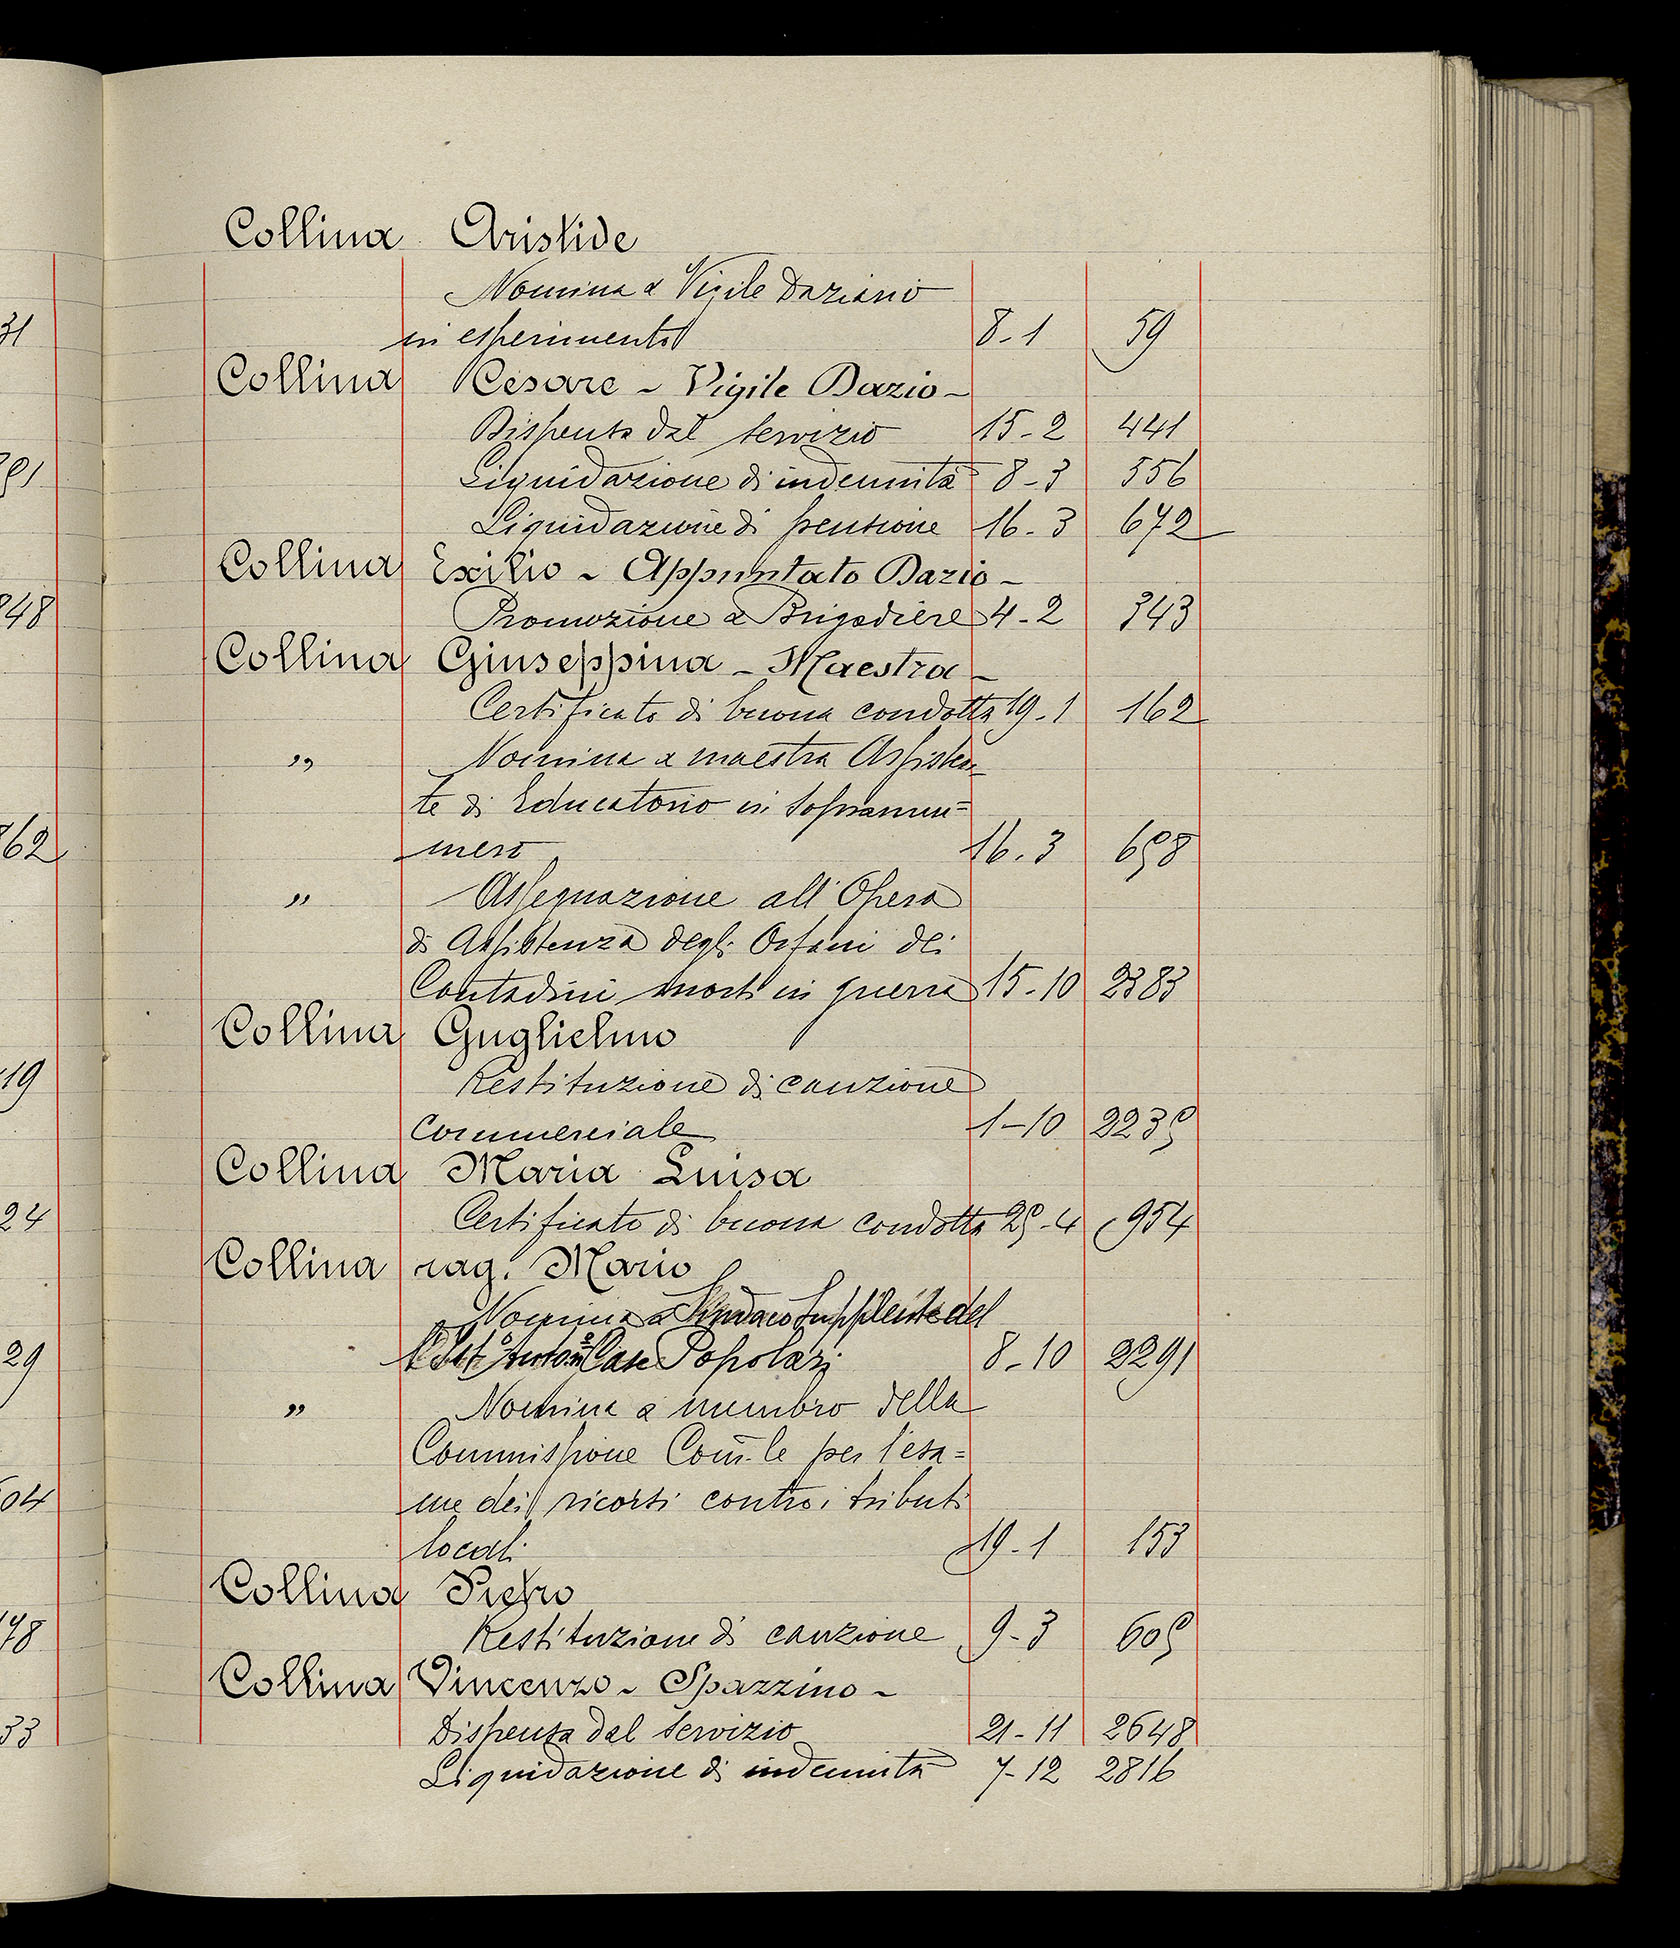 Collina Aristide
Nomina a Vigile Daziario
in esperimento 8-1 59
Collina Cesare - Vigile Dazio -
Dispensa dal servizio 15-2 441
Liquidazione di indennità 8-3 556
Liquidazione di pensione 16-3 672
Collina Exilio - Appuntato Dazio -
Promozione a Brigadiere 4-2 343
Collina Giuseppina - Maestra -
Certificato di buona condotta 19-1 162
„ Nomina a maestra Assisten-
te di Educatorio in Soprannu=
mero 16-3 698
„ Assegnazione all'Opera
di Assistenza degli Orfani dei
Contadini morti in guerra 15-10 2383
Collina Guglielmo
Restituzione di cauzione
Commerciale 1-10 2239
Collina Maria Luisa
Certificato di buona condotta 29-4 954
Collina rag. Mario
Nomina a Sindaco Supplente del
l'Ist° Auton° Case Popolari 8-10 2291
„ Nomina a membro della
Commissione Com-le per l'esa=
me dei ricorsi contro i tributi
locali 19-1 153
Collina Pietro
Restituzione di cauzione 9-3 609
Collina Vincenzo - Spazzino -
Dispensa dal Servizio 21-11 2648
Liquidazione di indennità 7-12 2816
31
48
62
19
24
29
04
78
33